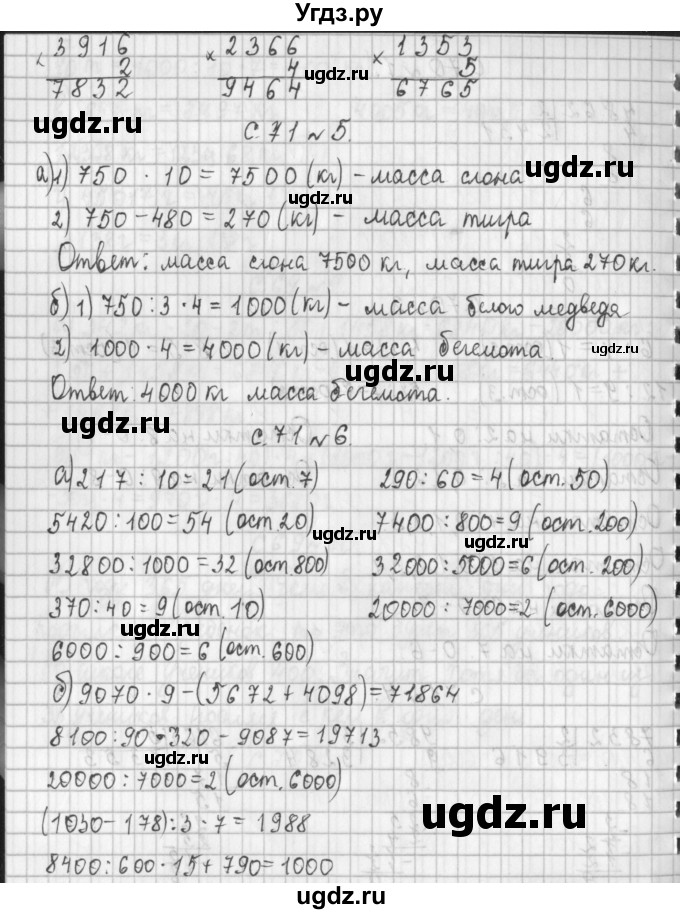 Угдз.ру
3916 2366 1353
× 2 × 4 × 5
7832 9464 6765
ugdz.ru
ugdz.ru
ugdz.ru
с. 71 № 5.
а) 1) 750 · 10 = 7500 (кг) – масса слона
ugdz.ru
2) 750 – 480 = 270 (кг) – масса тигра
Ответ: масса слона 7500 кг, масса тигра 270 кг.
б) 1) 750 : 3 · 4 = 1000 (кг) – масса белого медведя
2) 1000 · 4 = 4000 (кг) – масса бегемота.
ugdz.ru
ugdz.ru
Ответ: 4000 кг масса бегемота.
ugdz.ru
с. 71 № 6.
а) 217 : 10 = 21 (ост. 7) 290 : 60 = 4 (ост. 50)
5420 : 100 = 54 (ост. 20) 7400 : 800 = 9 (ост. 200)
ugdz.ru
ugdz.ru
32800 : 1000 = 32 (ост. 800) 32000 : 5000 = 6 (ост. 200)
370 : 40 = 9 (ост. 10) 20000 : 7000 = 2 (ост. 6000)
ugdz.ru
6000 : 900 = 6 (ост. 600)
б) 9070 · 9 – (5672 + 4098) = 71864
8100 : 90 · 320 – 9087 = 19713
ugdz.ru
20000 : 7000 = 2 (ост. 6000)
ugdz.ru
(1030 – 178) : 3 · 7 = 1988
8400 : 600 · 15 + 790 = 1000
ugdz.ru